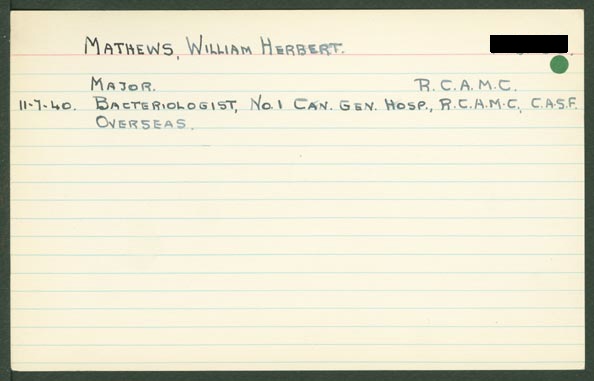 MATHEWS, WILLIAM HERBERT.
MAJOR. R.C.A.M.C.
11-7-40. BACTERIOLOGIST, NO.1 CAN. GEN. HOSP., R.C.A.M.C., C.A.S.F.
OVERSEAS.